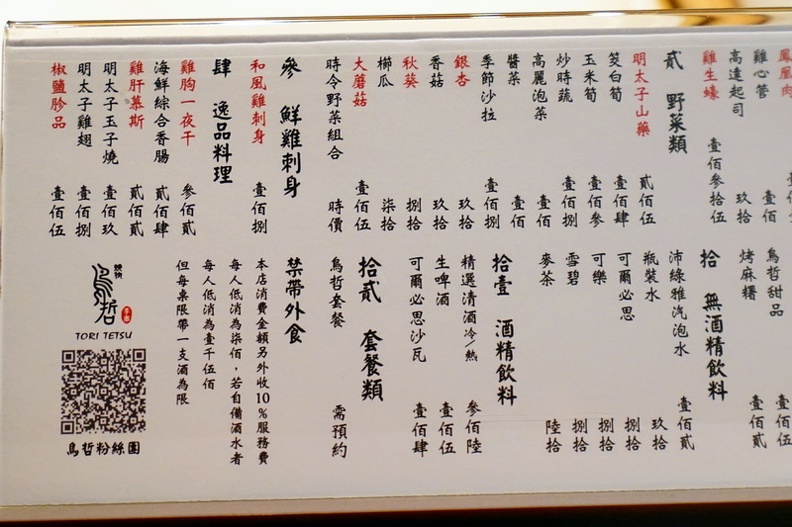 鳳凰肉
雞心管 壹佰
高達起司 玖拾
雞生蠔 壹佰參拾伍
貳 野菜類
明太子山藥 貳佰伍
筊白筍 壹佰肆
玉米筍 壹佰參
炒時蔬 壹佰捌
高麗泡菜 壹佰
醬菜 壹佰
季節沙拉 壹佰捌
銀杏 玖拾
香菇 玖拾
秋葵 捌拾
櫛瓜 柒拾
大蘑菇 壹佰伍
時令野菜組合 時價
參 鮮雞刺身
和風雞刺身 壹佰捌
肆 逸品料理
雞胸一夜干 參佰貳
海鮮綜合香腸 貳佰肆
雞肝慕斯 貳佰貳
明太子玉子燒 壹佰玖
明太子雞翅 壹佰捌
椒鹽胗品 壹佰伍
鳥哲甜品 壹佰伍
烤麻糬 壹佰貳
拾 無酒精飲料
沛綠雅汽泡水 壹佰貳
瓶裝水 玖拾
可爾必思 捌拾
可樂 捌拾
雪碧 捌拾
麥茶 陸拾
拾壹 酒精飲料
精選清酒冷/熱 參佰陸
生啤酒 壹佰伍
可爾必思沙瓦 壹佰肆
拾貳 套餐類
鳥哲套餐 需預約
禁帶外食
本店消費金額另外收10%服務費
每人低消為柒佰，若自備酒水者
每人低消為壹千伍佰
但每桌限帶一支酒為限
鳥哲
TORI TETSU
鳥哲粉絲團